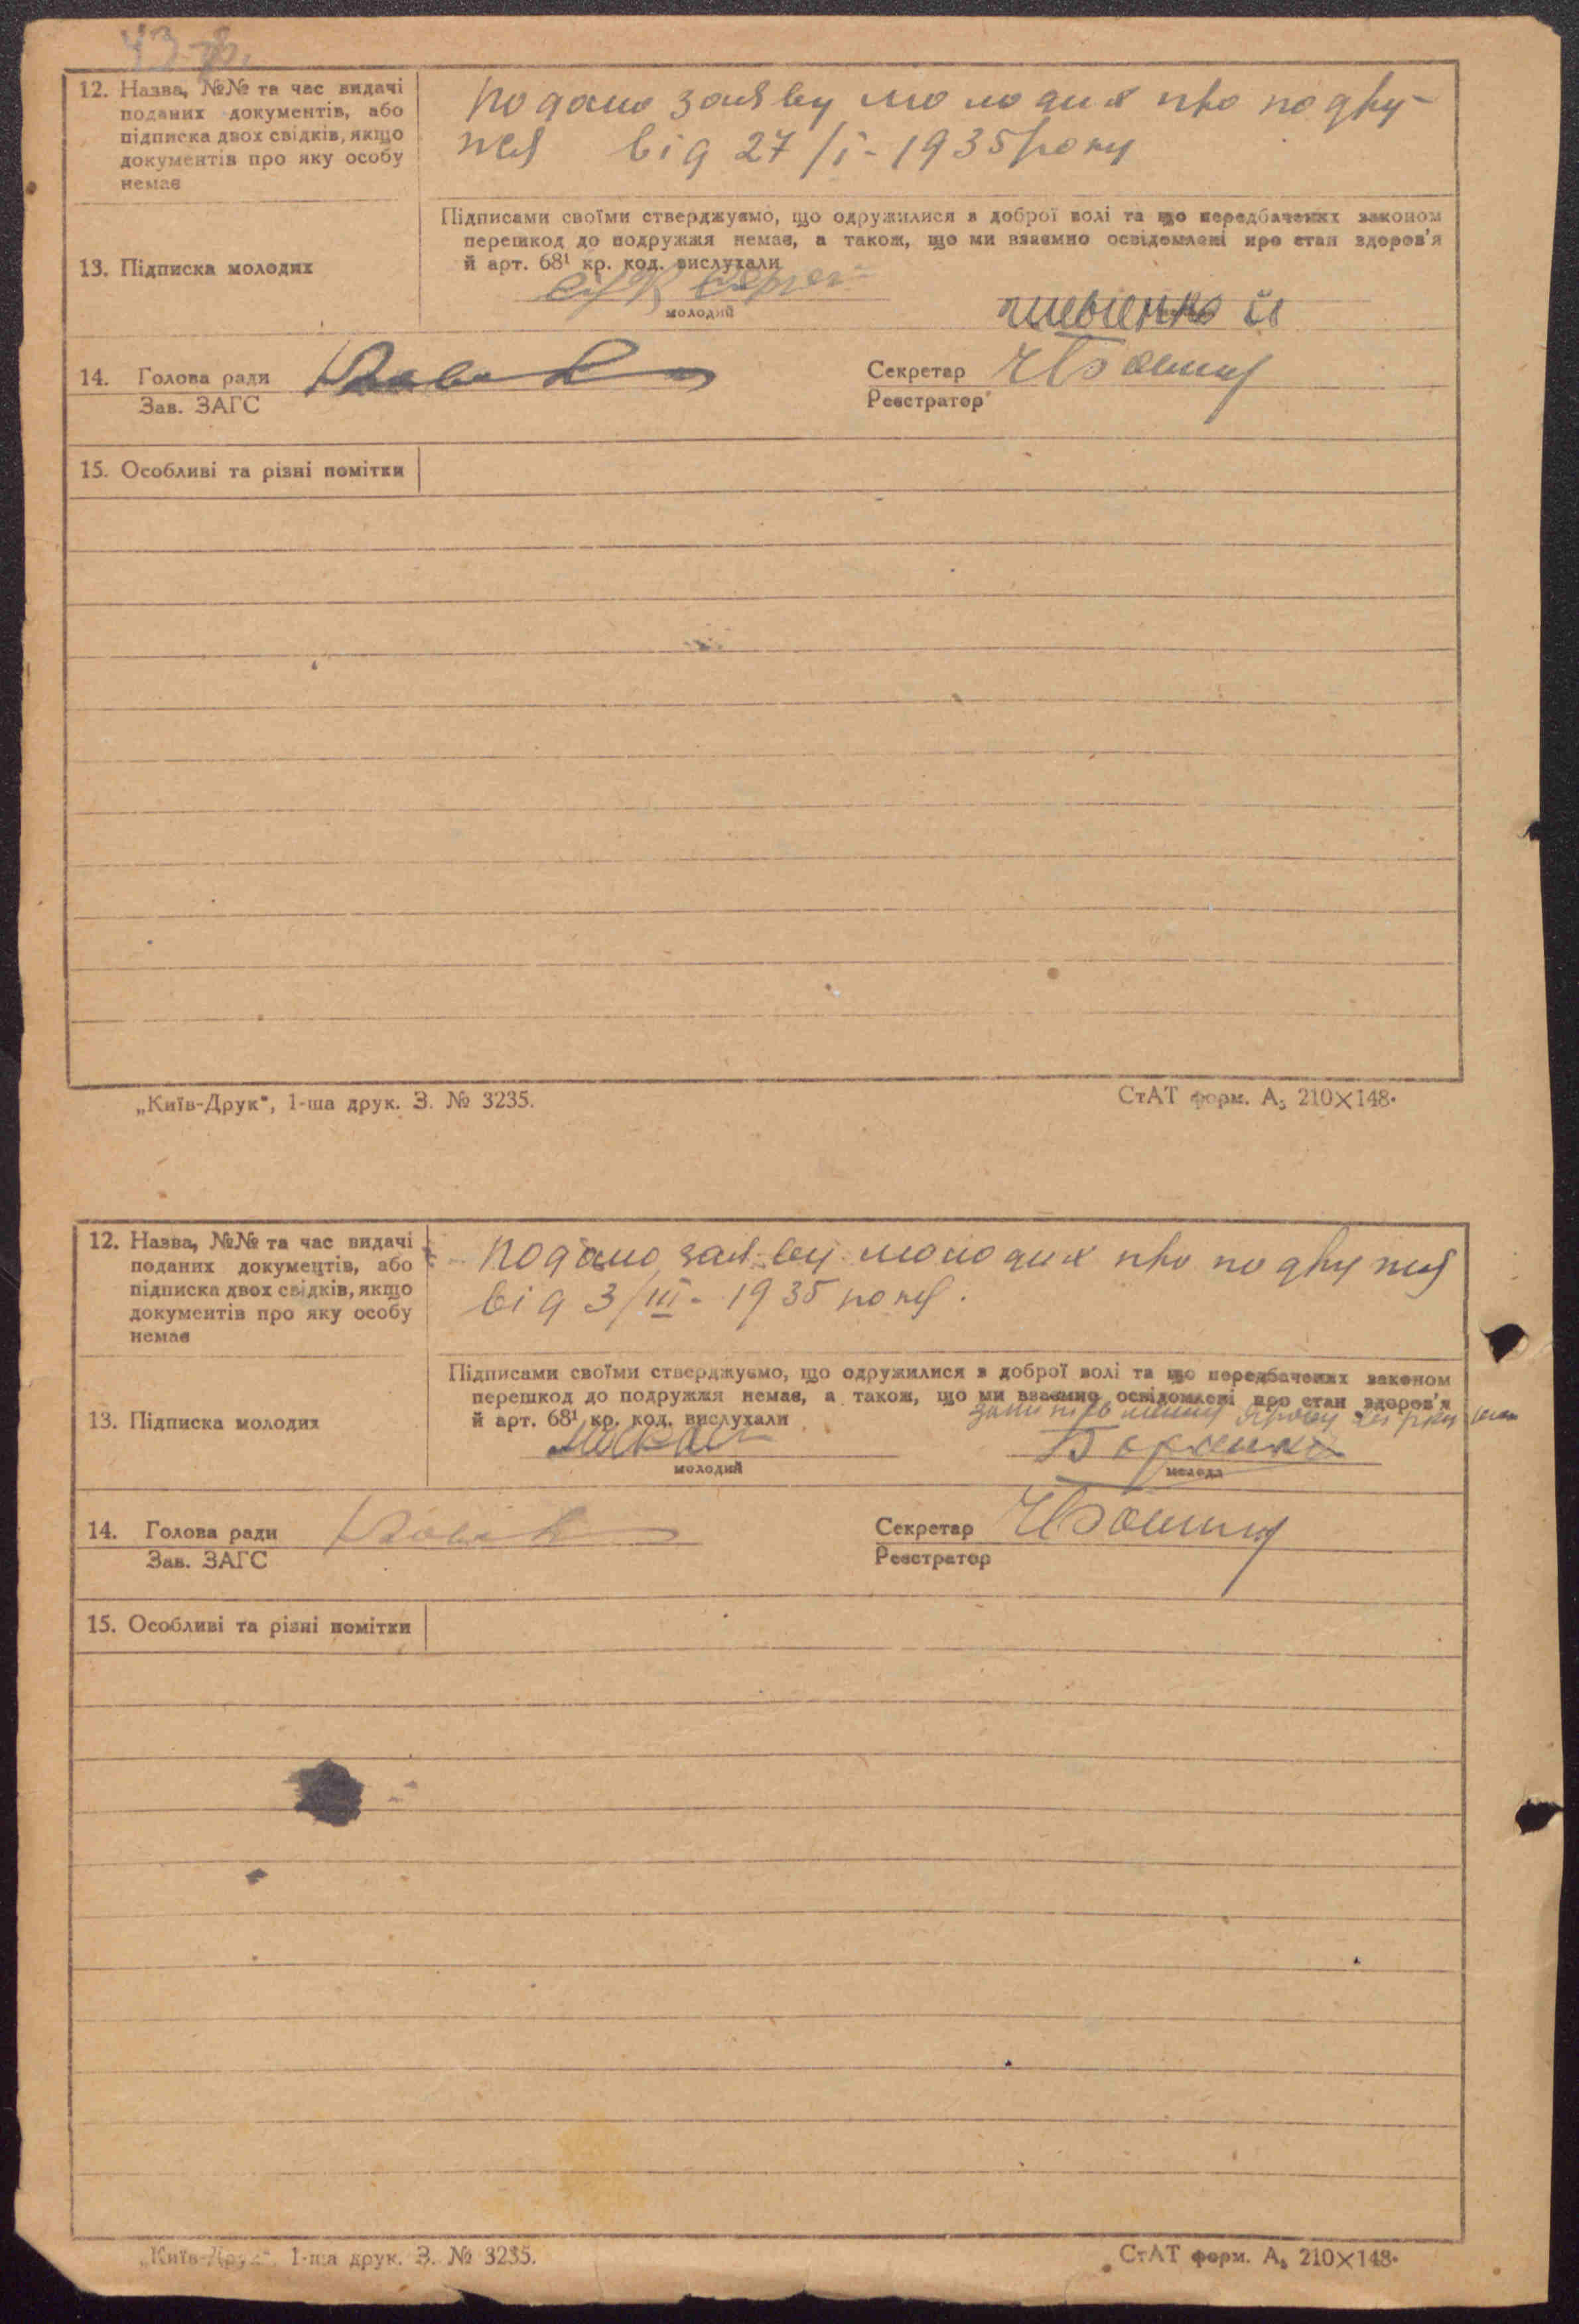 43-в.
12. Назва, №№ та час видачі
поданих документів, або
підписка двох свідків, якщо
документів про яку особу
немає
подано заяву молодих про подру-
жжя від 27/I-1935 року
13. Підписка молодих
Підписами своїми стверджуємо, що одружилися з доброї волі та що передбачених законом
перешкод до подружжя немає, а також, що ми взаємно освідомлені про стан здоров'я
й арт. 68¹ кр. код. вислухали
молодий
14. Голова ради
Зав. ЗАГС
Секретар
Реєстратор
15. Особливі та різні помітки
„Київ-Друк", 1-ша друк. З. № 3235.
СтАТ форм. А₅ 210×148.
12. Назва, №№ та час видачі
поданих документів, або
підписка двох свідків, якщо
документів про яку особу
немає
подано заяву молодих про подружжя
від 3/III-1935 року.
13. Підписка молодих
Підписами своїми стверджуємо, що одружилися з доброї волі та що передбачених законом
перешкод до подружжя немає, а також, що ми взаємно освідомлені про стан здоров'я
й арт. 68¹ кр. код. вислухали
молодий
молода
14. Голова ради
Зав. ЗАГС
Секретар
Реєстратор
15. Особливі та різні помітки
„Київ-Друк", 1-ша друк. З. № 3235.
СтАТ форм. А₅ 210×148.